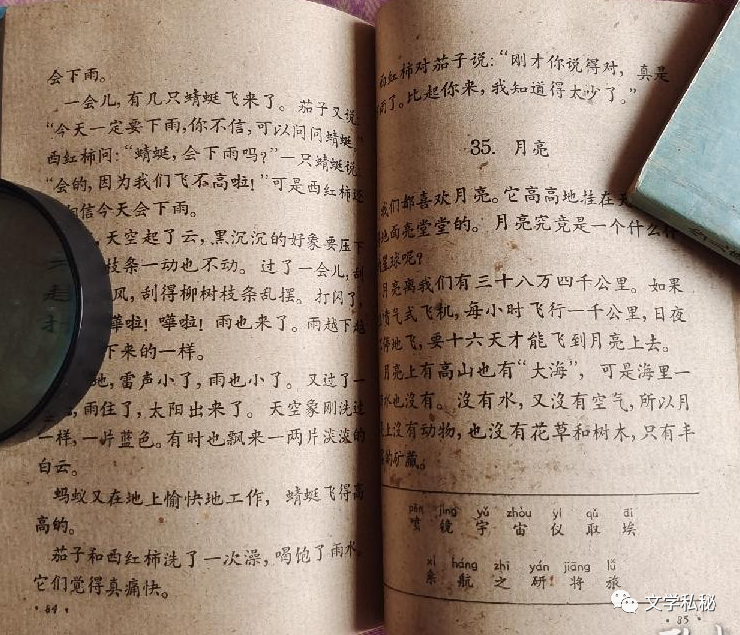 会下雨。
一会儿，有几只蜻蜓飞来了。茄子又说：
“今天一定要下雨，你不信，可以问问蜻蜓。”
西红柿问：“蜻蜓，会下雨吗？”一只蜻蜓说：
“会的，因为我们飞不高啦！”可是西红柿还
信今天会下雨。
天空起了云，黑沉沉的好象要压下
枝条一动也不动。过了一会儿，刮
风，刮得柳树枝条乱摆。打闪了，
啦！嘩啦！雨也来了。雨越下越
下来的一样。
地，雷声小了，雨也小了。又过了一
雨住了，太阳出来了。天空象刚洗过
一样，一片蓝色。有时也飘来一两片淡淡的
白云。
蚂蚁又在地上愉快地工作，蜻蜓飞得高
高的。
茄子和西红柿洗了一次澡，喝饱了雨水。
它们觉得真痛快。
·84·
西红柿对茄子说：“刚才你说得对，真是
雨了。比起你来，我知道得太少了。”
35. 月亮
我们都喜欢月亮。它高高地挂在天
地面亮堂堂的。月亮究竟是一个什么
星球呢？
月亮离我们有三十八万四千公里。如果
喷气式飞机，每小时飞行一千公里，日夜
停地飞，要十六天才能飞到月亮上去。
月亮上有高山也有“大海”，可是海里一
水也沒有。沒有水，又沒有空气，所以月
上沒有动物，也沒有花草和树木，只有丰
的矿藏。
pēn jìng yǔ zhòu yí qǔ āi
喷 镜 宇 宙 仪 取 埃
xì háng zhī yán jiāng lǚ
系 航 之 研 将 旅
·85·
文学私秘